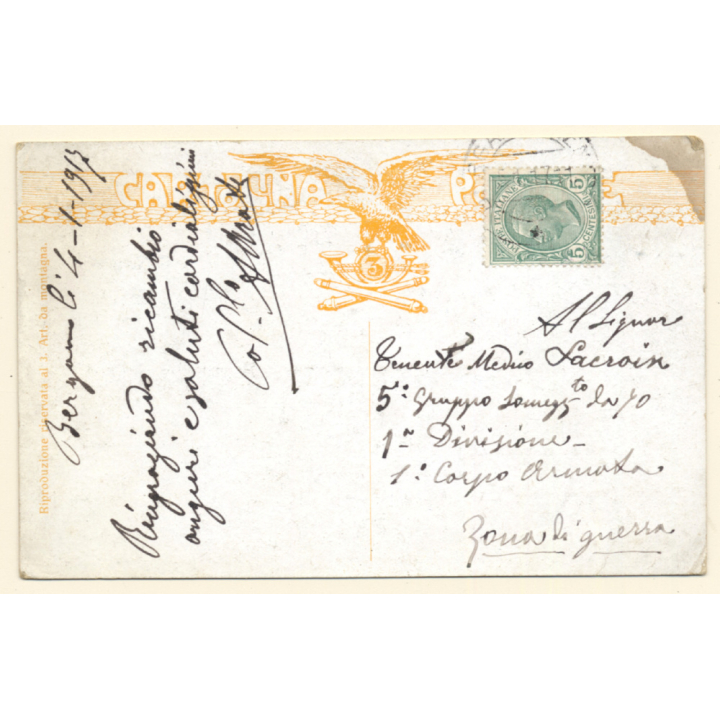 CARTOLINA POSTALE
3
Riproduzione riservata al 3. Art. da montagna.
POSTE ITALIANE
CENTESIMI
5
5
Bergamo li 4-1-1917
Ringraziando ricambio
auguri e saluti cordialissimi
Al Signor
Tenente Medico Lacroix
5º Gruppo Someggto da 70
1ª Divisione
1º Corpo Armata
Zona di guerra